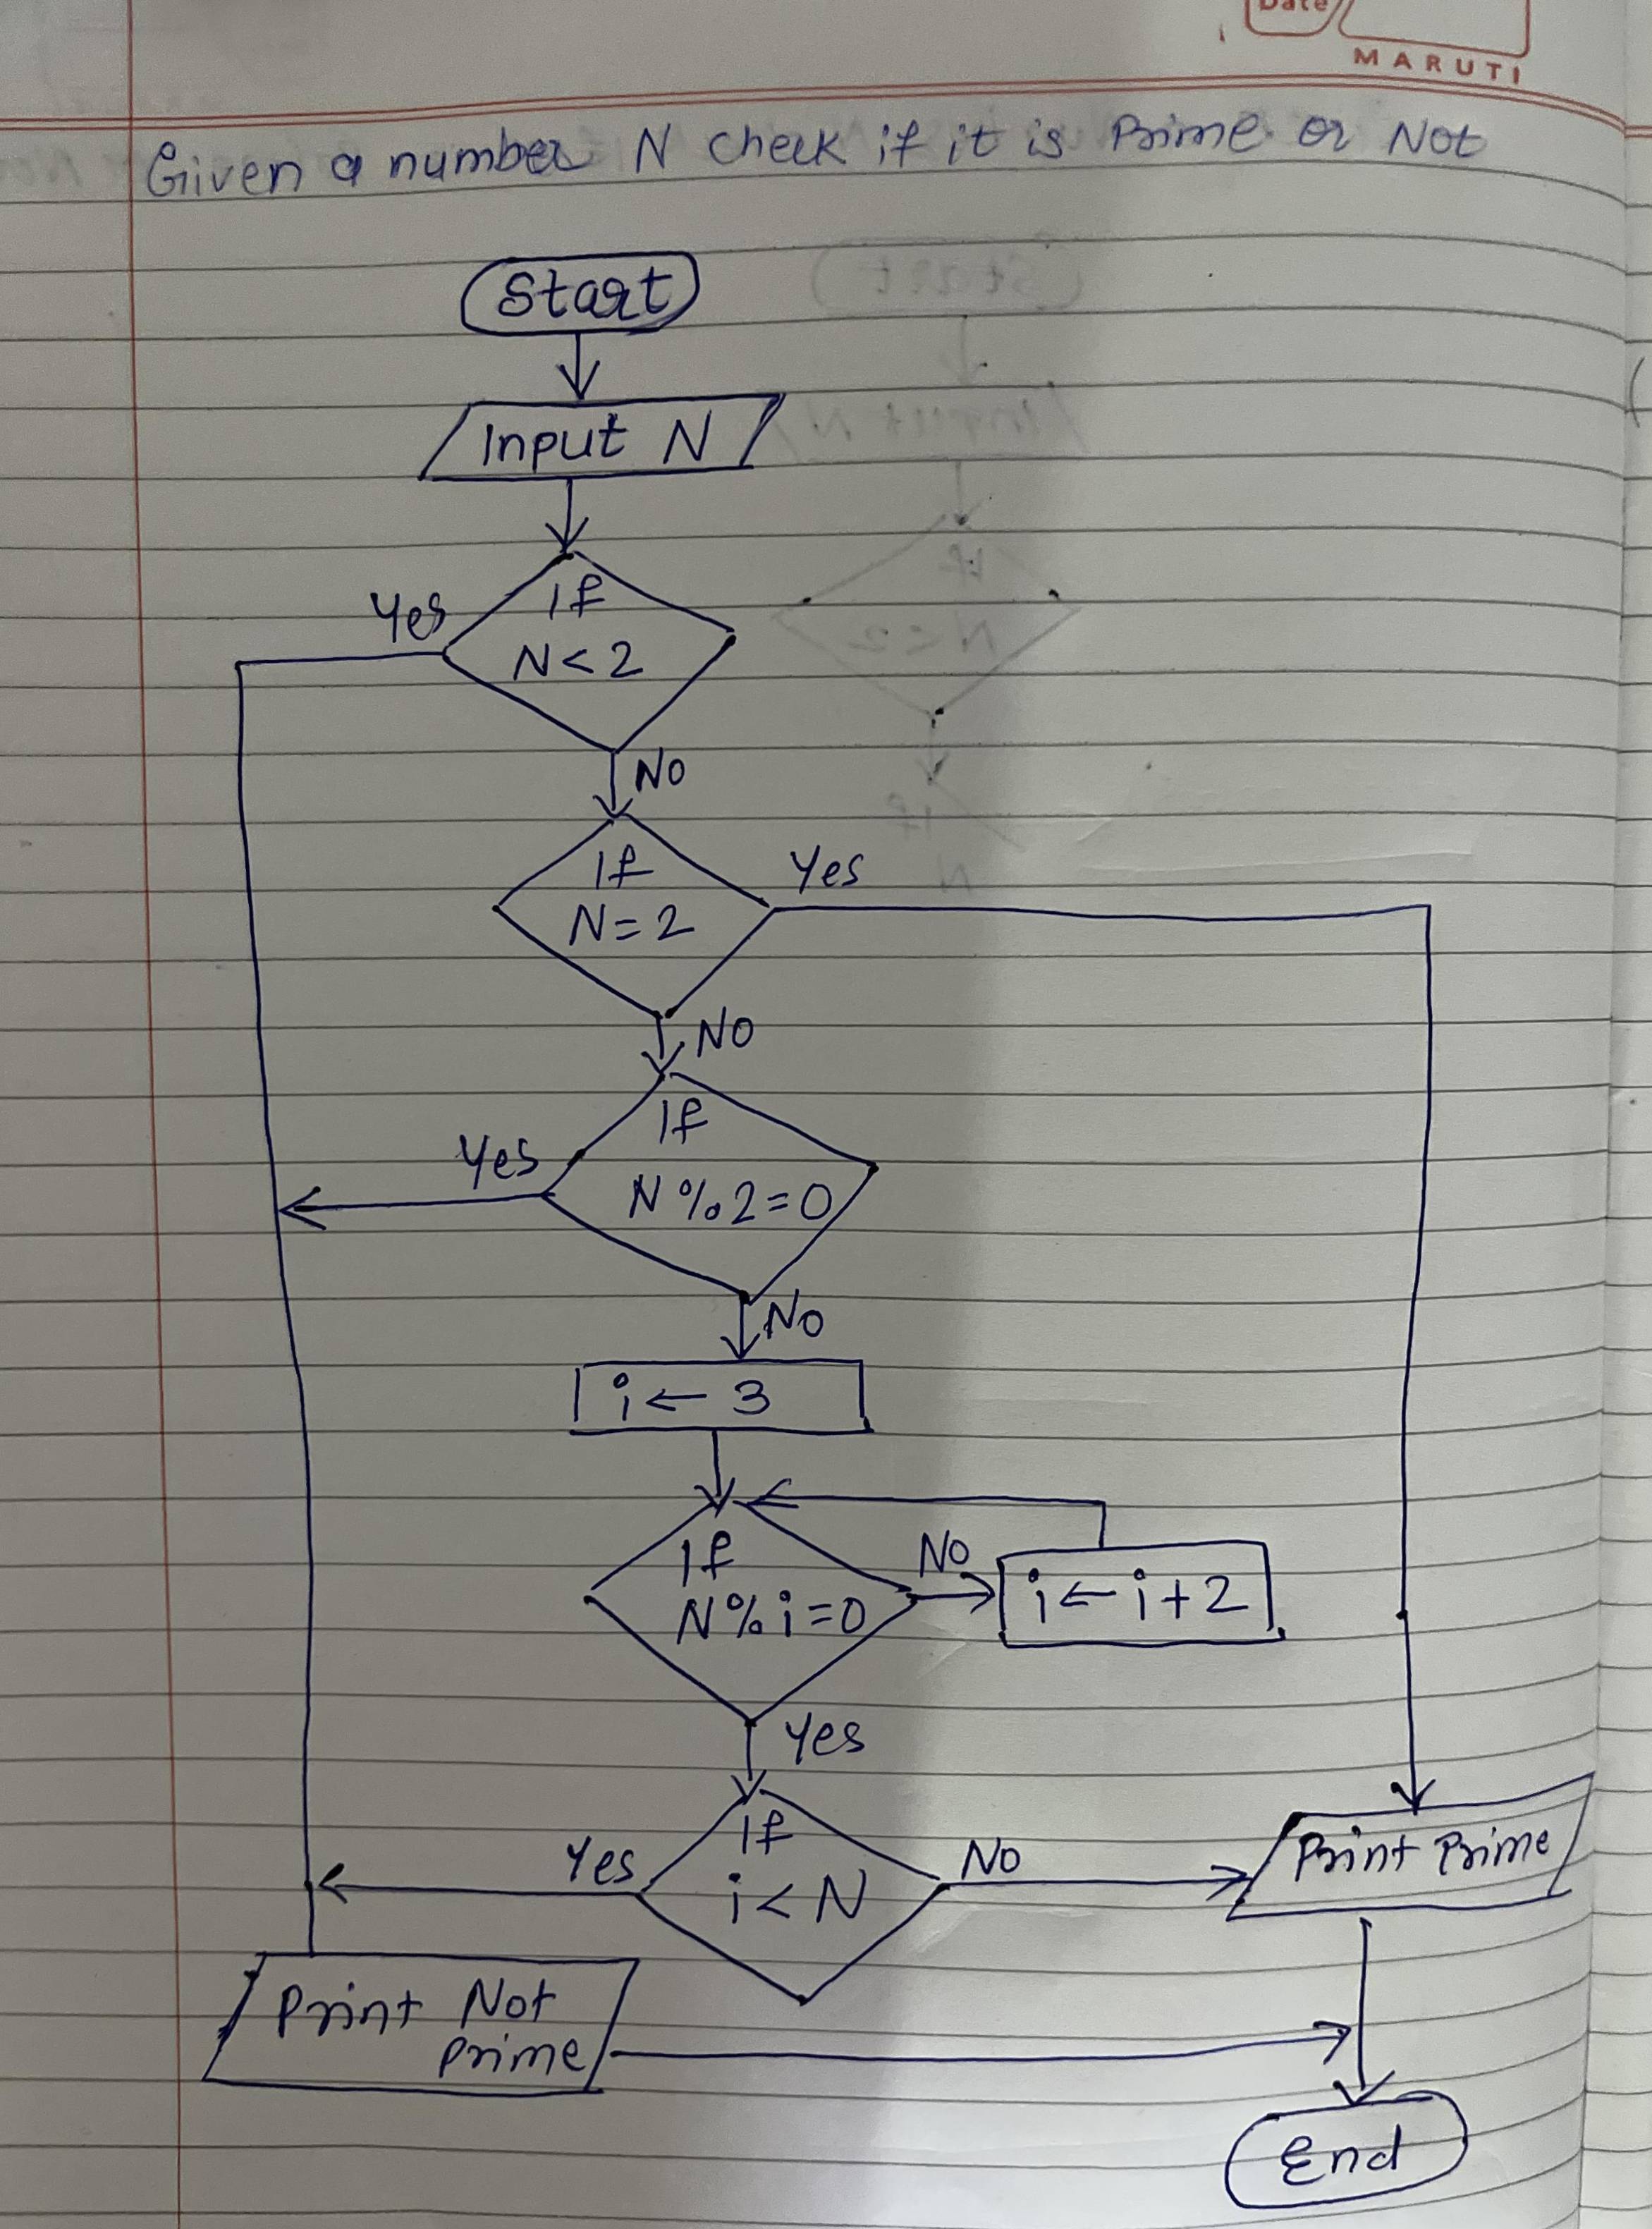 Date
MARUTI
Given a number N check if it is Prime or Not
Start
Input N
If
N<2
Yes
No
If
N=2
Yes
No
If
N%2=0
Yes
No
i ← 3
If
N%i=0
No
i ← i+2
Yes
If
i<N
Yes
No
Print Prime
Print Not
Prime
End